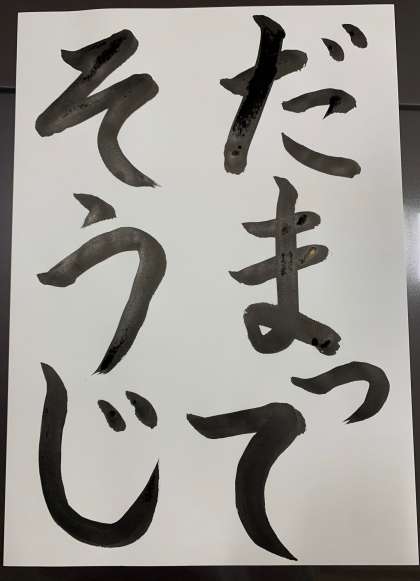 だまって
そうじ